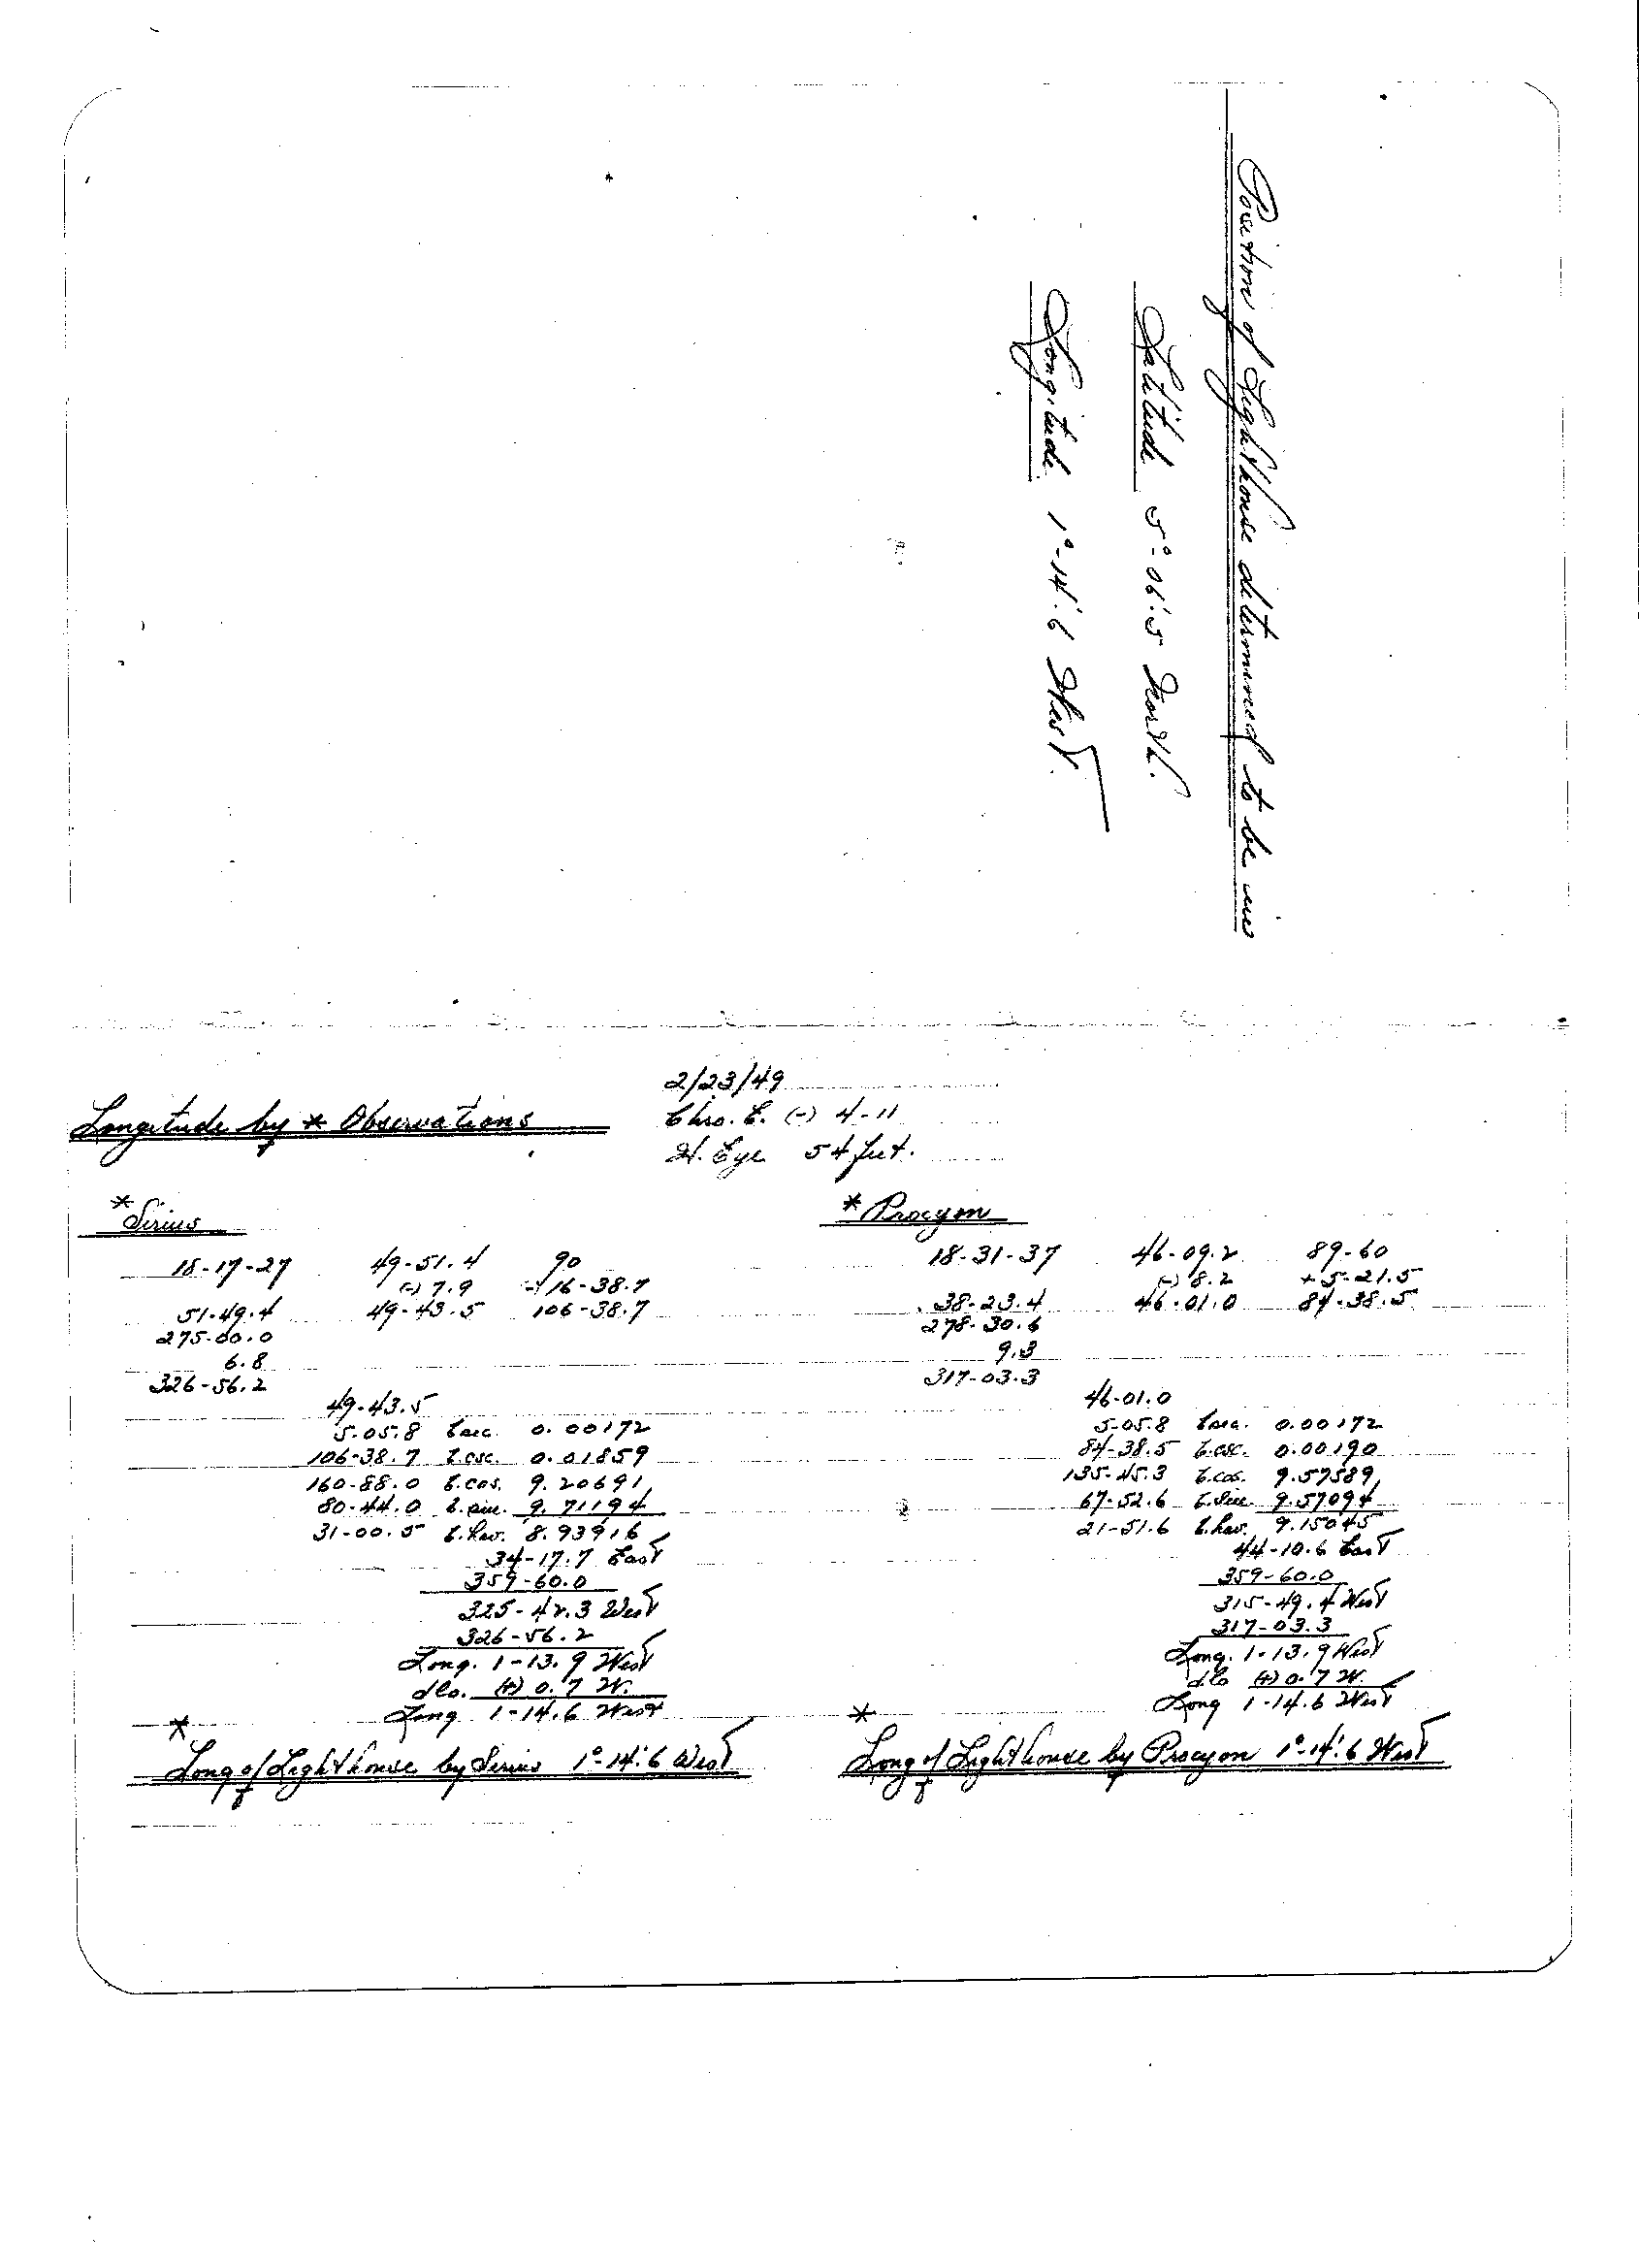 Position of Lighthouse determined to be in
Latitude 5°-06'.5 North.
Longitude 1°-14'.6 West.
Longitude by * Observations
2/23/49
Chro. E. (-) 4-11
H. Eye 54 feet.
*Sirius
18-17-27 49-51.4 90
(-) 7.9 (-) 16-38.7
51-49.4 49-43.5 106-38.7
275-00.0
6.8
326-56.2
49-43.5
5-05.8 l.sec. 0.00172
106-38.7 l.csc. 0.01859
160-88.0 l.cos. 9.20691
80-44.0 l.sin. 9.71194
31-00.5 l.hav. 8.93916
34-17.7 East
359-60.0
325-42.3 West
326-56.2
Long. 1-13.9 West
dLo. (+) 0.7 W.
Long 1-14.6 West
*
Long of Lighthouse by Sirius 1°-14'.6 West
*Procyon
18-31-37 46-09.2 89-60
(-) 8.2 + 5-21.5
38-23.4 46-01.0 84-38.5
278-30.6
9.3
317-03.3
46-01.0
5-05.8 l.sec. 0.00172
84-38.5 l.csc. 0.00190
135-45.3 l.cos. 9.57589
67-52.6 l.sin. 9.57094
21-51.6 l.hav. 9.15045
44-10.6 East
359-60.0
315-49.4 West
317-03.3
Long. 1-13.9 West
dLo (+) 0.7 W.
Long 1-14.6 West
*
Long of Lighthouse by Procyon 1°-14'.6 West